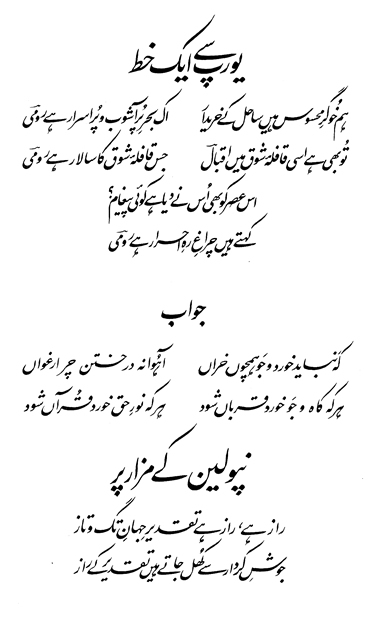 یورپ سے ایک خط
ہم خوگرِ محسوس ہیں ساحل کے خریدار اک بحرِ پُر آشوب و پُر اسرار ہے رومیؔ
تُو بھی ہے اسی قافلۂ شوق میں اقبالؔ جس قافلۂ شوق کا سالار ہے رومیؔ
اس عصر کو بھی اُس نے دیا ہے کوئی پیغام؟
کہتے ہیں چراغِ رہِ احرار ہے رومیؔ
جواب
کہ نباید خورد و جو ہمچوں خراں آہوانہ در ختن چر ارغواں
ہر کہ کاہ و جو خورد قرباں شود ہر کہ نورِ حق خورد قرآں شود
نپولین کے مزار پر
راز ہے، راز ہے تقدیرِ جہانِ تگ و تاز
جوشِ کردار سے کھل جاتے ہیں تقدیر کے راز